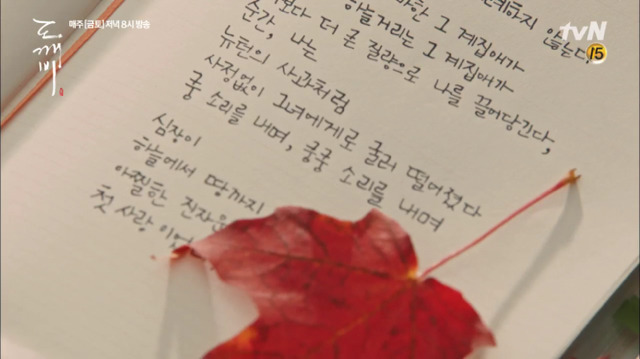 도깨비
매주 [금토] 저녁 8시 방송
tvN
15
하지 않는다,
그 계집애가
보다 더 큰 질량으로 나를 끌어당긴다,
순간, 나는
뉴턴의 사과처럼
사정없이 그녀에게로 굴러 떨어졌다
쿵 소리를 내며, 쿵쿵 소리를 내며
심장이
하늘에서 땅까지
아찔한 진자운
첫 사랑 이었